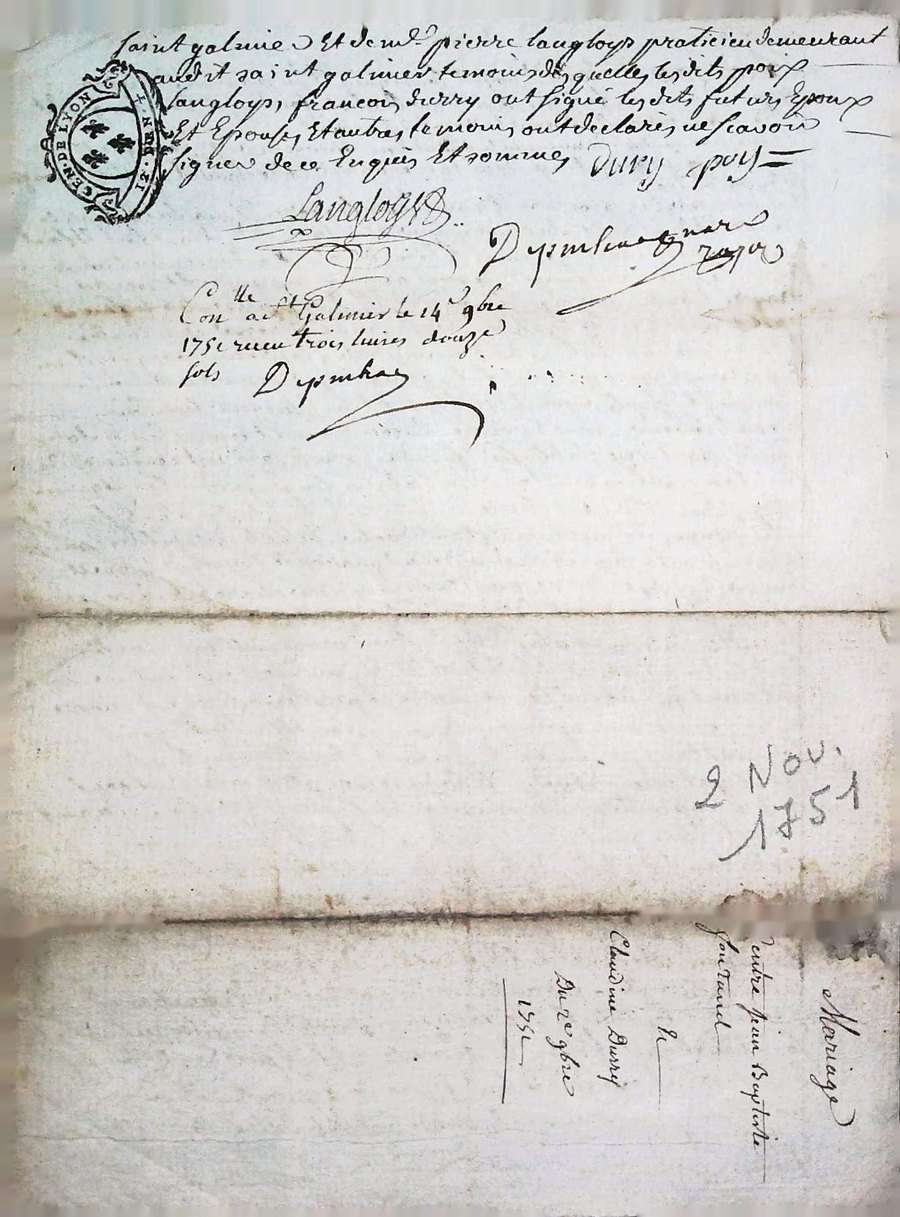 Saint galmier Et de m.e pierre langloys praticien demeurant
audit saint galmier temoins des quelles les dits poix
langloys, francois durry ont signé les dits futurs Epoux
Et Epouse, Et autres temoins ont declarés ne scavoir
signer de ce Enquis Et sommes durij poy
Langloys
Con lle a St Galmier le 14e 9bre
1751 receu trois livres douze
sols
GEN. DE LYON
2 Nov.
1751
Mariage
entre jean Baptiste
Et
Claudine Durry
Du 2e 9bre
1751